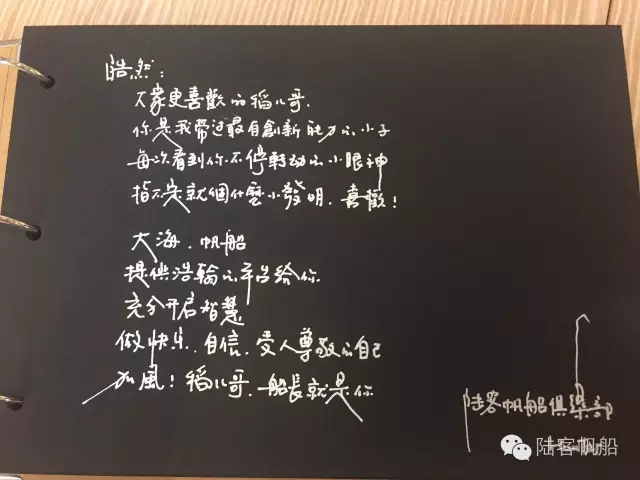 皓然：
大家更喜歡的稻八哥.
你是我带过最有創新能力的小子
每次看到你不停轉动的小眼神
指不定就個什麼小發明.喜歡！
大海.帆船
提供浩瀚的平台给你
充分开启智慧
做快乐.自信.受人尊敬的自己
加風！稻八哥.船長就是你
陆客帆船俱樂部
陆客帆船